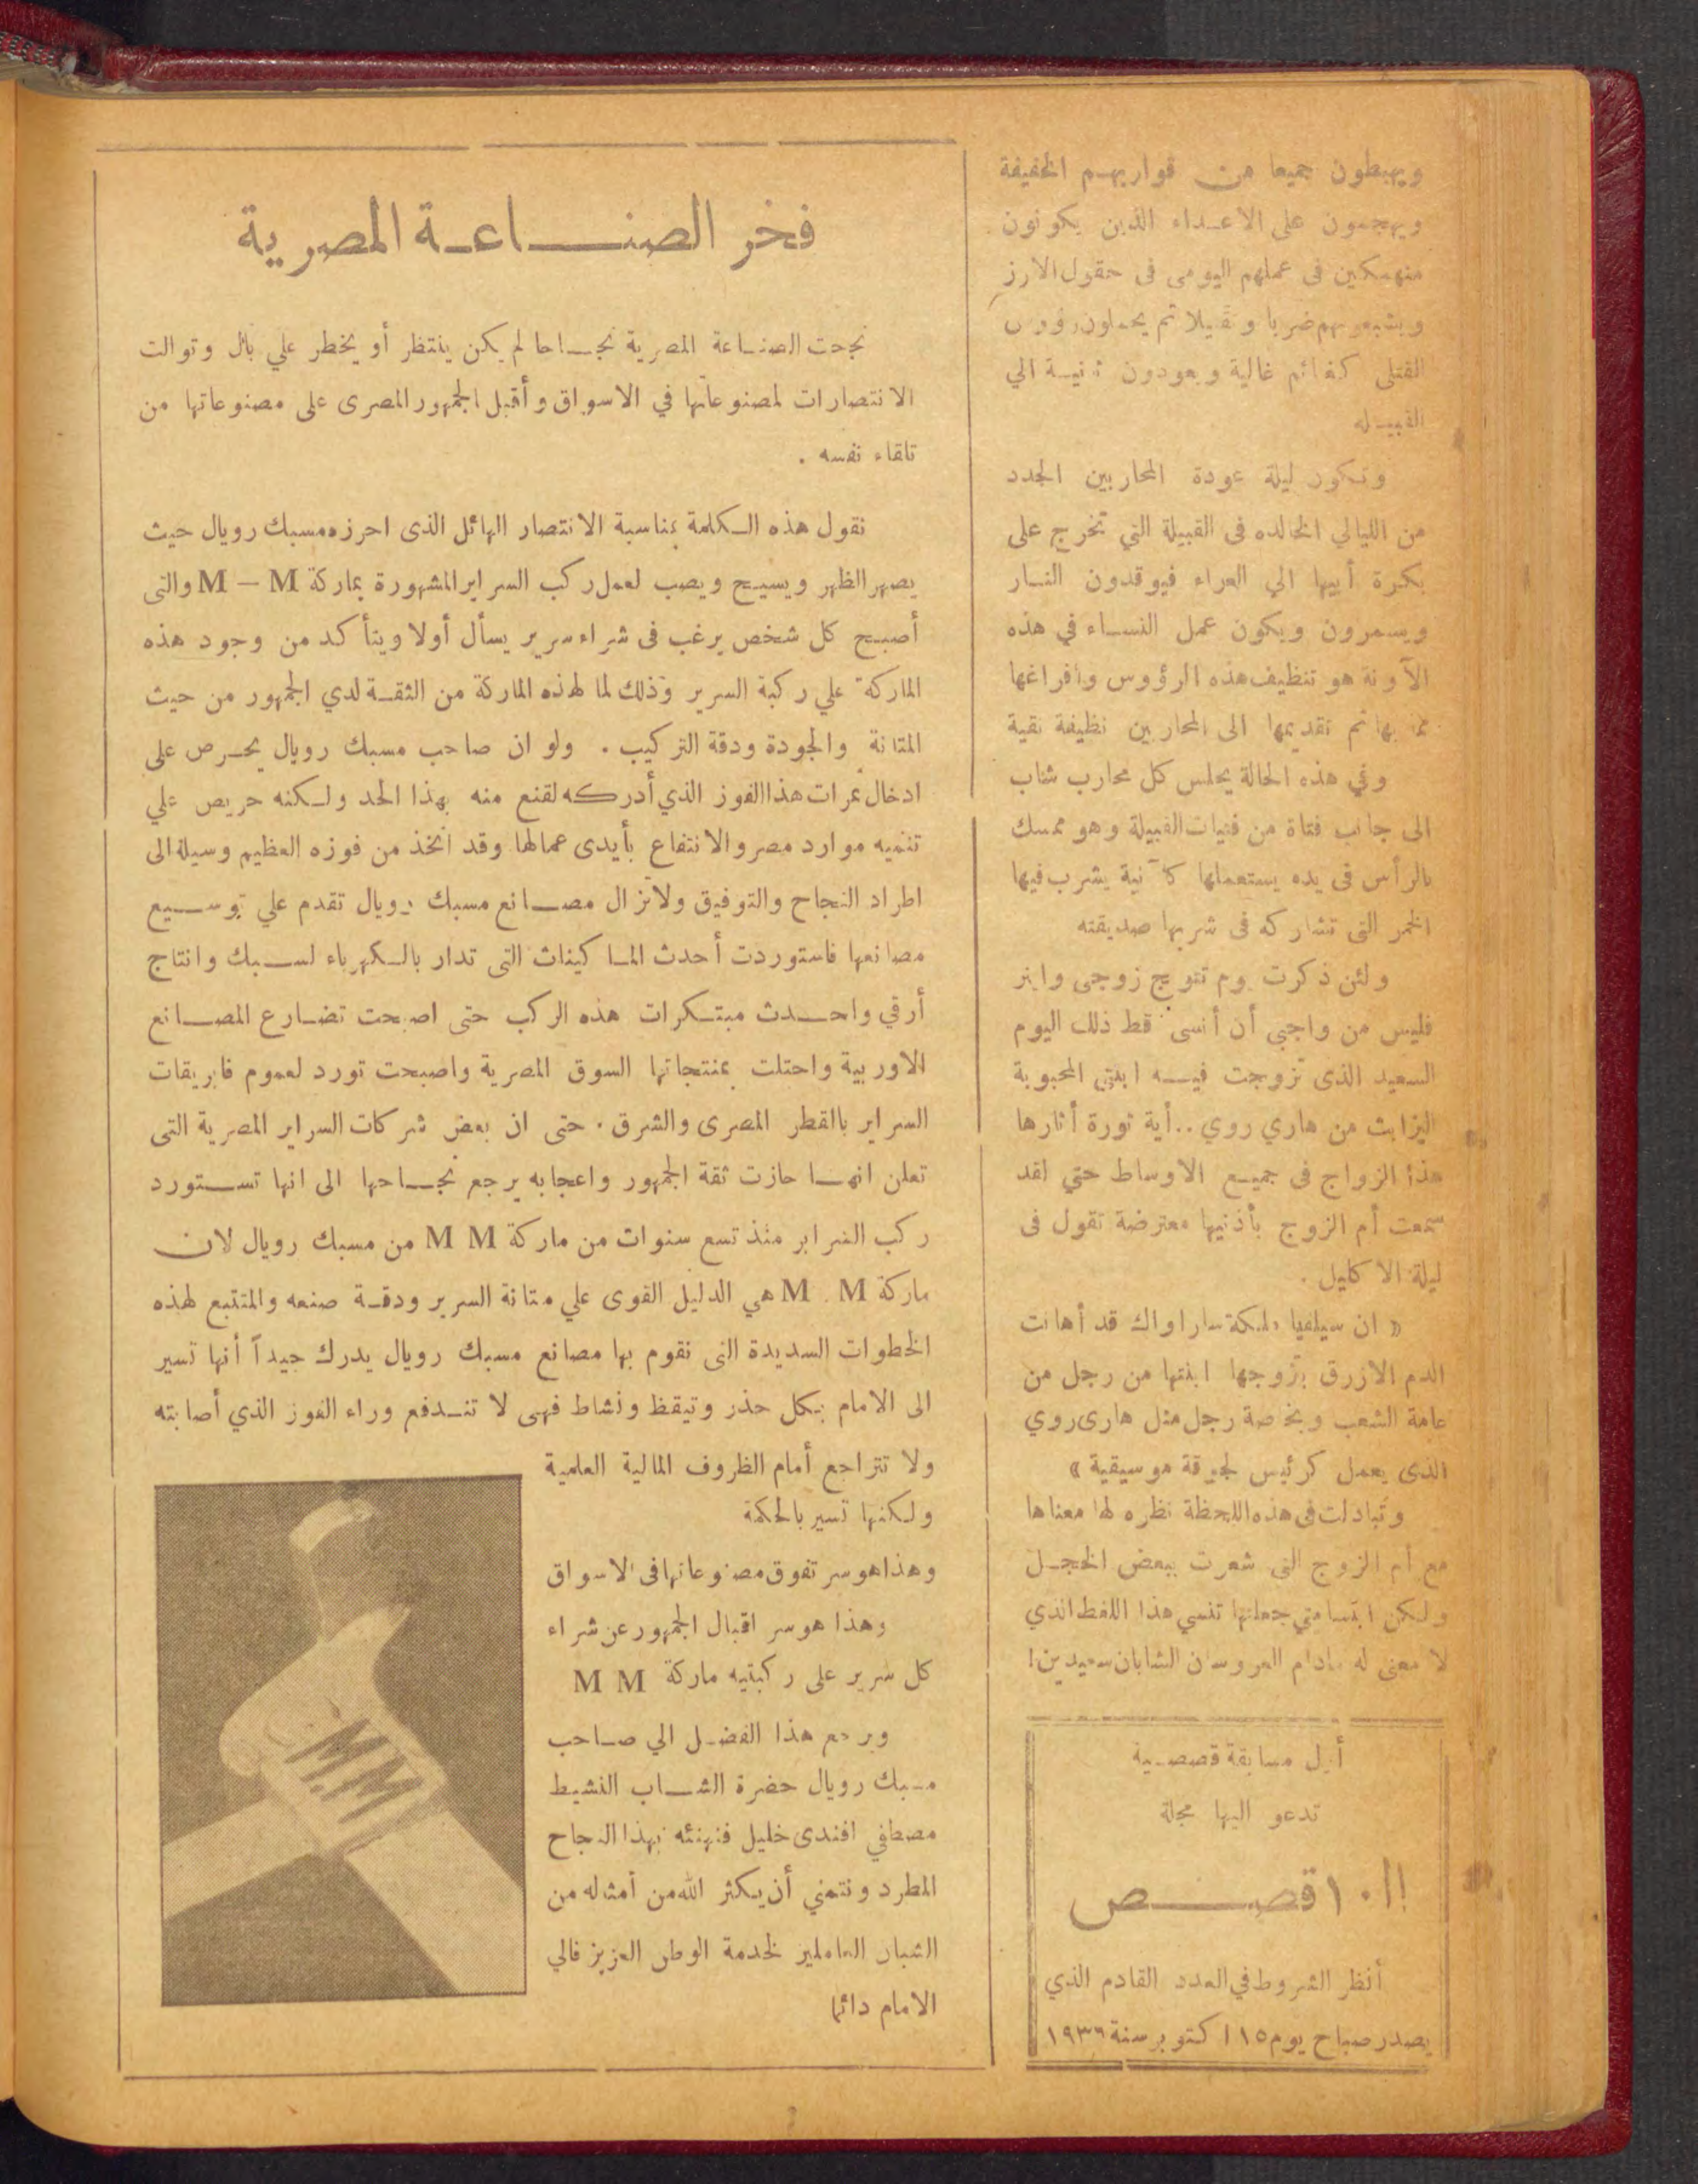 ويهبطون جميعا من قواربهم الخفيفة
ويهجمون على الاعداء الذين يكونون
منهمكين فى عملهم اليومى فى حقول الارز
ويشبعونهم ضربا وتقتيلا ثم يحملون رؤوس
القتلى كغنائم غالية ويعودون ثانية الي
القبيله
وتكون ليلة عودة المحاربين الجدد
من الليالي الخالده فى القبيلة التي تخرج على
بكرة أبيها الي العراء فيوقدون النار
ويسمرون ويكون عمل النساء في هذه
الآونة هو تنظيف هذه الرؤوس وافراغها
مما بها ثم تقديمها الى المحاربين نظيفة نقية
وفي هذه الحالة يجلس كل محارب شاب
الى جانب فتاة من فتيات القبيلة وهو ممسك
بالرأس فى يده يستعملها كآنية يشرب فيها
الخمر التى تشاركه فى شربها صديقته
ولئن ذكرت يوم تتويج زوجى وابنر
فليس من واجبي أن أنسى قط ذلك اليوم
السعيد الذى تزوجت فيه ابنتى المحبوبة
اليزابث من هاري روي .. أية ثورة أثارها
هذا الزواج فى جميع الاوساط حتي لقد
سمعت أم الزوج بأذنيها معترضة تقول فى
ليلة الاكليل .
« ان سيلفيا ملكة ساراواك قد أهانت
الدم الازرق بتزوجها ابنتها من رجل من
عامة الشعب وبخاصة رجل مثل هارى روي
الذى يعمل كرئيس لجوقة موسيقية »
وتبادلت فى هذه اللحظة نظره لها معناها
مع أم الزوج التى شعرت ببعض الخجل
ولكن ابتسامتي جعلتها تنسي هذا اللغط الذي
لا معنى له مادام العروسان الشابان سعيدين !
أول مسابقة قصصية
تدعو اليها مجلة
ال ١٠ قصص
أنظر الشروط في العدد القادم الذي
يصدر صباح يوم ١٥ اكتوبر سنة ١٩٣٦
فخر الصناعة المصرية
نجحت الصناعة المصرية نجاحا لم يكن ينتظر أو يخطر علي بال وتوالت
الانتصارات لمصنوعاتها في الاسواق وأقبل الجمهور المصرى على مصنوعاتها من
تلقاء نفسه .
نقول هذه الكلمة بمناسبة الانتصار الهائل الذى احرزه مسبك رويال حيث
يصهر الظهر ويسيح ويصب لعمل ركب السراير المشهورة بماركة M – M والتى
أصبح كل شخص يرغب فى شراء سرير يسأل أولا ويتأكد من وجود هذه
الماركة علي ركبة السرير وذلك لما لهذه الماركة من الثقة لدي الجمهور من حيث
المتانة والجودة ودقة التركيب . ولو ان صاحب مسبك رويال يحرص على
ادخال ثمرات هذا الفوز الذي أدركه لقنع منه بهذا الحد ولكنه حريص علي
تنميه موارد مصر والانتفاع بأيدى عمالها وقد اتخذ من فوزه العظيم وسيلة الى
اطراد النجاح والتوفيق ولاتزال مصانع مسبك رويال تقدم علي توسيع
مصانعها فاستوردت أحدث الماكينات التى تدار بالكهرباء لسبك وانتاج
أرقي واحدث مبتكرات هذه الركب حتى اصبحت تضارع المصانع
الاوربية واحتلت بمنتجاتها السوق المصرية واصبحت تورد لعموم فابريقات
السراير بالقطر المصرى والشرق . حتى ان بعض شركات السراير المصرية التى
تعلن انها حازت ثقة الجمهور واعجابه يرجع نجاحها الى انها تستورد
ركب السراير منذ تسع سنوات من ماركة M M من مسبك رويال لان
ماركة M . M هي الدليل القوى علي متانة السرير ودقة صنعه والمتتبع لهذه
الخطوات السديدة التى تقوم بها مصانع مسبك رويال يدرك جيداً أنها تسير
الى الامام بكل حذر وتيقظ ونشاط فهى لا تندفع وراء الفوز الذي أصابته
ولا تتراجع أمام الظروف المالية العلمية
ولكنها تسير بالحكمة
وهذا هو سر تفوق مصنوعاتها فى الاسواق
وهذا هو سر اقبال الجمهور عن شراء
كل سرير على ركبتيه ماركة M M
ويرجع هذا الفضل الي صاحب
مسبك رويال حضرة الشاب النشيط
مصطفي افندى خليل فنهنئه بهذا النجاح
المطرد ونتمني أن يكثر الله من أمثاله من
الشبان العاملين لخدمة الوطن العزيز فالي
الامام دائما
M.M